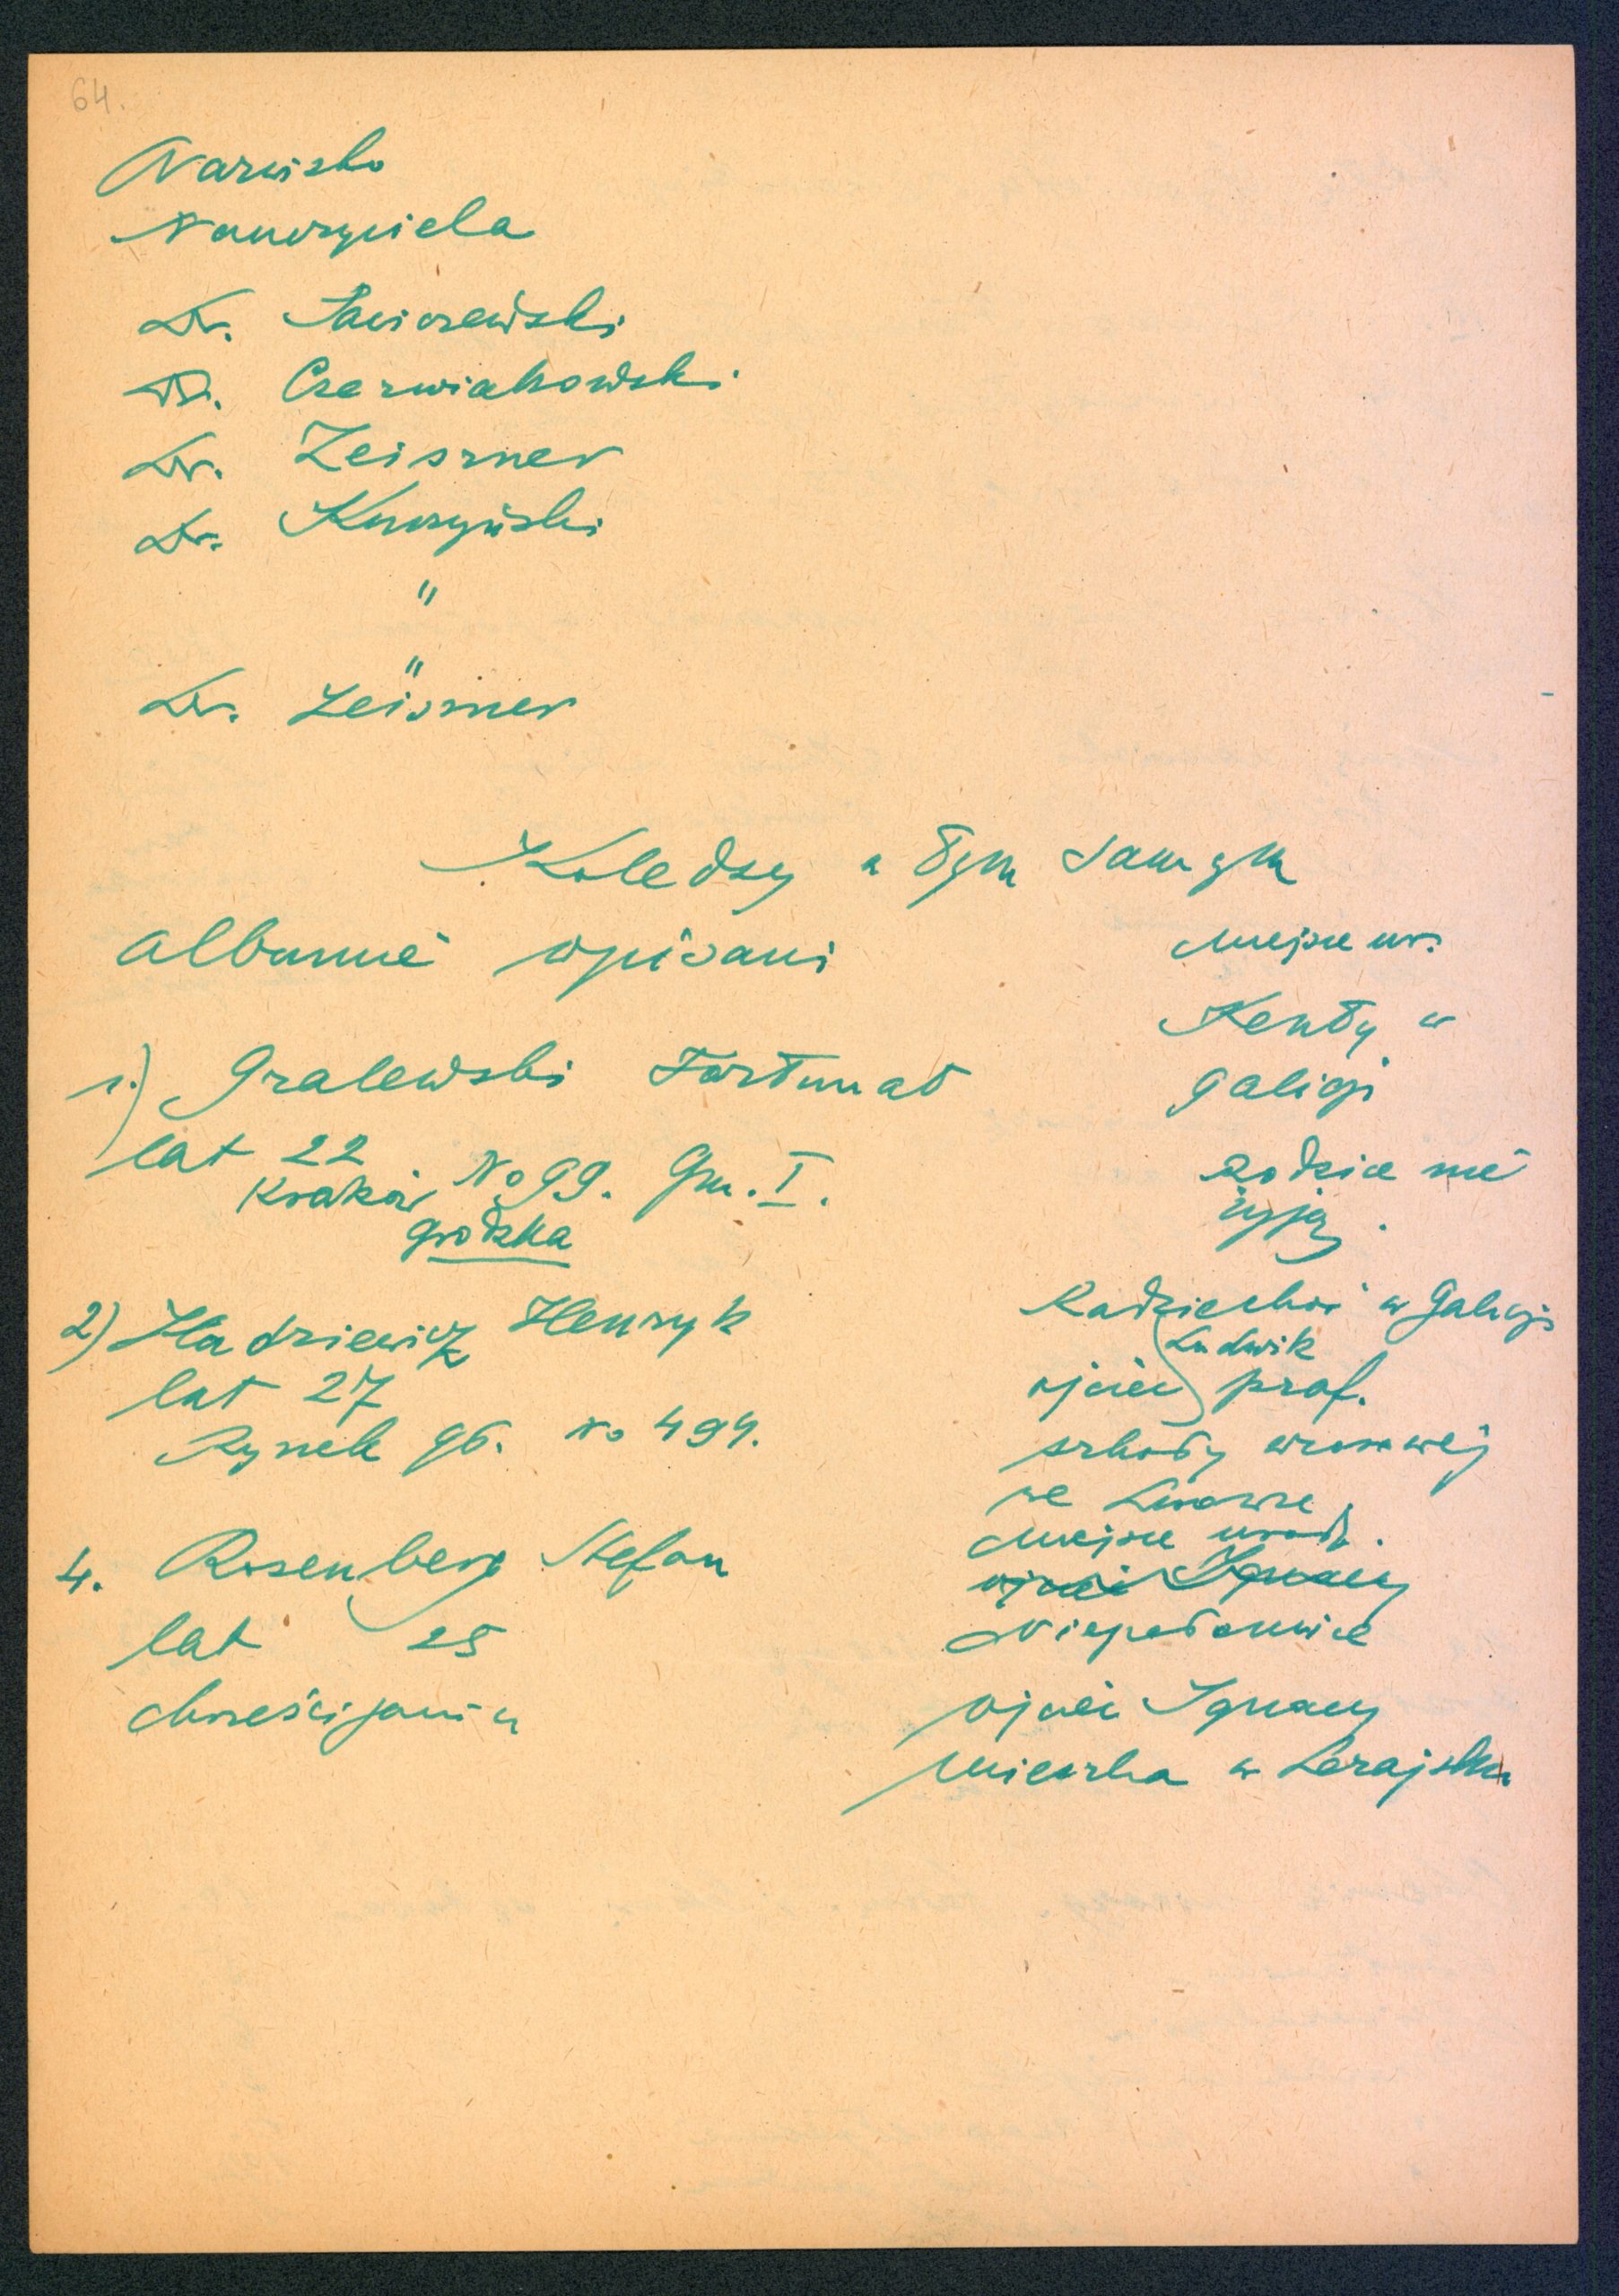 64.
Nazwisko
Nauczyciela
Dr. Sawiczewski
Dr. Czerwiakowski
Dr. Zeiszner
Dr. Kuczyński
"
"
Dr. Zeiszner
Koledzy w tym samym
albumie opisani
Miejsce ur.
Kenty w
Galicji
1.) Gralewski Fortunat
lat 22
Kraków No 99. Gm. I.
Grodzka
Rodzice nie
żyją.
2) Hadziewicz Henryk
lat 27
Rynek gł. No 494.
Radziechów w Galicji
Ludwik
ojciec prof.
szkoły wzorowej
we Lwowie
4. Rosenberg Stefan
lat 25
chrześcijanin
Miejsce urodz.
ojciec Ignacy
Niepołomice
ojciec Ignacy
mieszka w Leżajsku